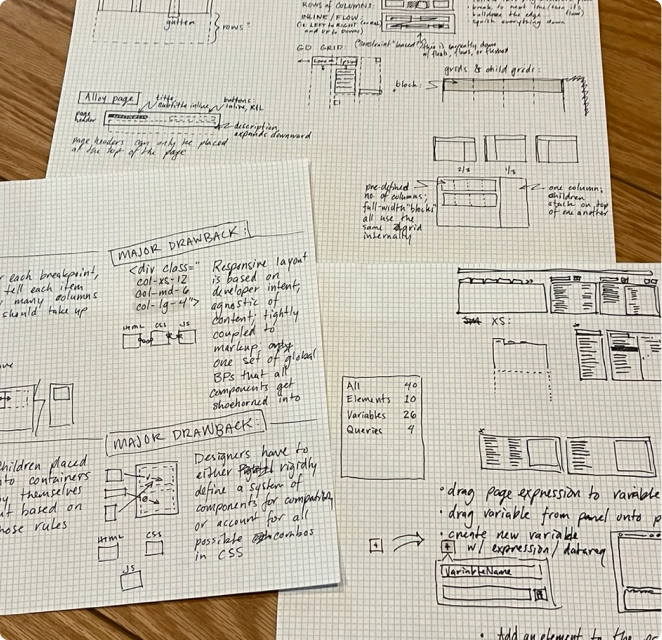 gutter
rows?
ROWS OF COLUMNS:
INLINE / FLOW:
GO LEFT TO RIGHT
and UP to DOWN)
break to next line
GO GRID: ("constraint" based)
grids & child grids:
block:
Alloy page
title,
subtitle inline,
buttons:
inline, RTL
page
header
description,
expands downward
page headers can only be placed
at the top of the page
2/3
1/3
pre-defined
no. of columns;
full-width "blocks"
all use the
same grid
internally
one column;
children
stack on top
of one another
each breakpoint,
tell each item
many columns
should take up
MAJOR DRAWBACK:
<div class="
col-xs-12
col-md-6
col-lg-4">
HTML CSS JS
Responsive layout
is based on
developer intent,
agnostic of
content, tightly
coupled to
markup, only
one set of global
BPs that all
components get
shoehorned into
children placed
into containers
by themselves
based on
those rules
MAJOR DRAWBACK:
HTML
CSS
JS
Designers have to
either rigidly
define a system of
components for compatibility
or account for all
possible combos
in CSS
XS:
All 40
Elements 10
Variables 26
Queries 4
• drag page expression to variable
drag variable from panel onto p
• create new variable
w/ expression/datareq
VariableName
• Add an element to the